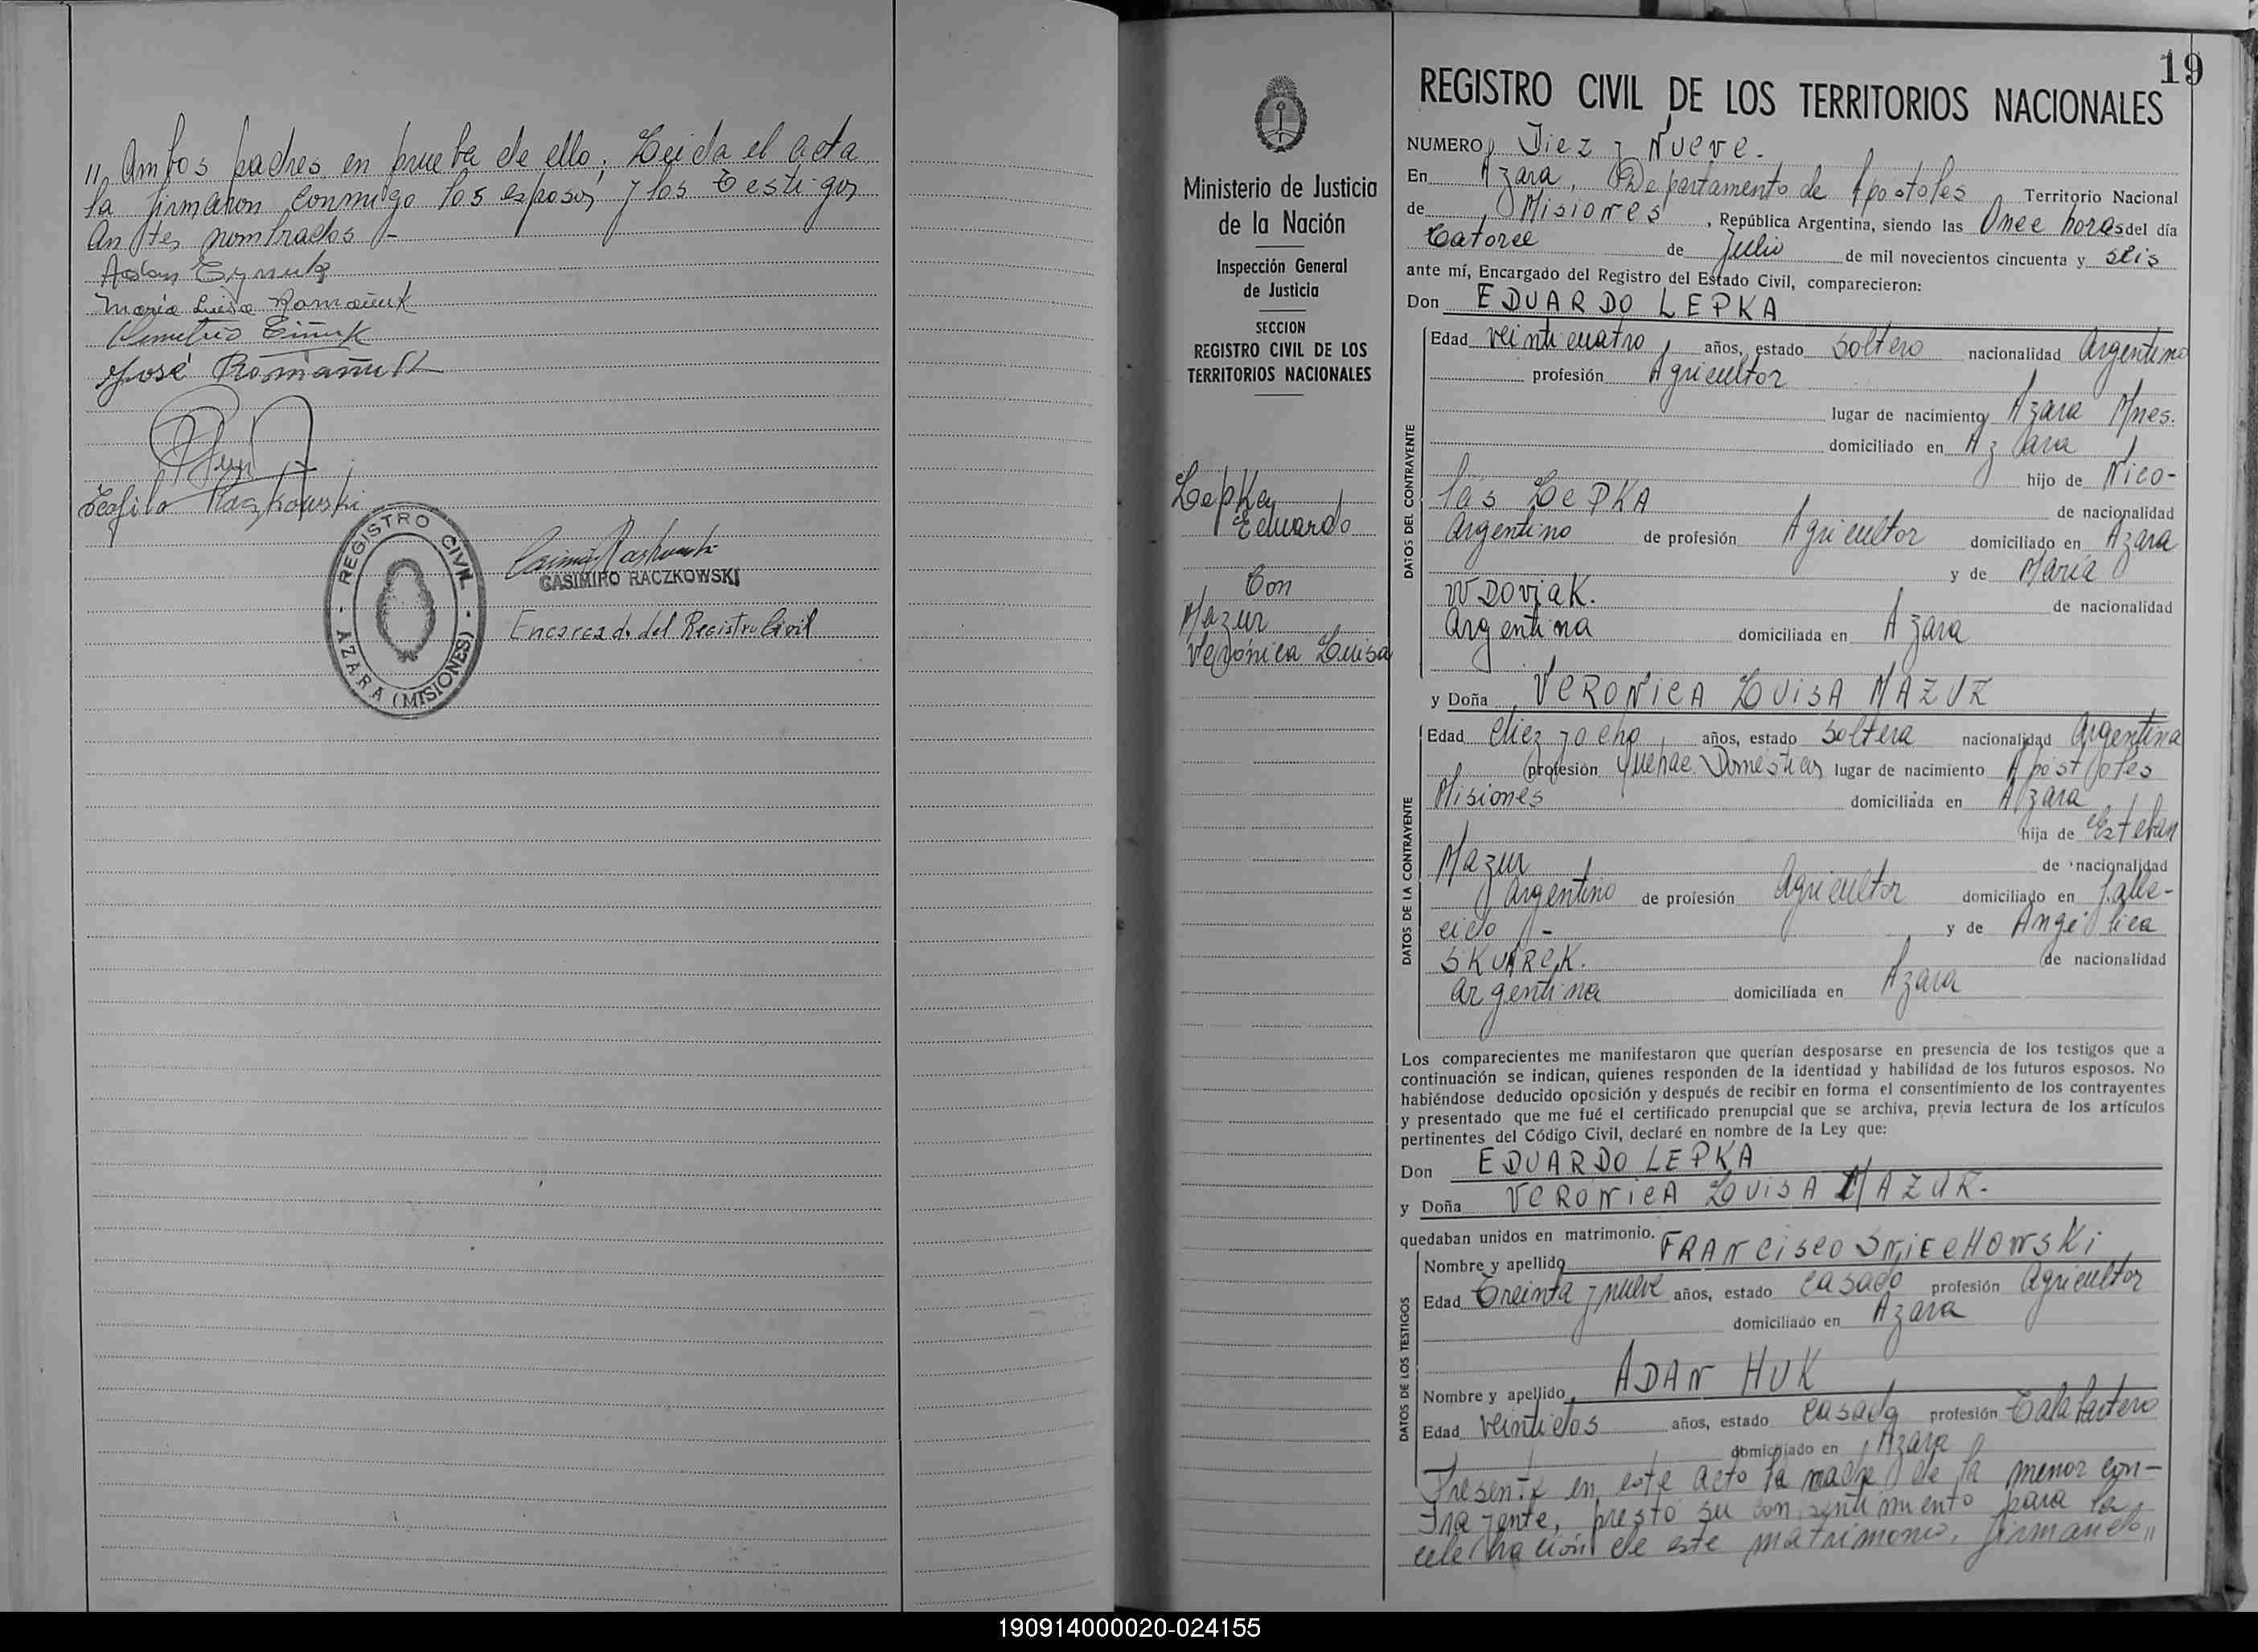 " Ambos padres en prueba de ello; Leida el acta
la firmaron conmigo los esposos y los testigos
antes nombrados -
Maria Luisa Romaniuk
José Romaniuk
Teofilo Raczkowski
REGISTRO CIVIL
- AZARA (MISIONES) -
CASIMIRO RACZKOWSKI
Encargado del Registro Civil
Ministerio de Justicia
de la Nación
Inspección General
de Justicia
SECCION
REGISTRO CIVIL DE LOS
TERRITORIOS NACIONALES
Lepka
Eduardo
Con
Mazur
Verónica Luisa
19
REGISTRO CIVIL DE LOS TERRITORIOS NACIONALES
NUMERO Diez y Nueve.-
En Azara, Departamento de Apostoles Territorio Nacional
de Misiones, República Argentina, siendo las Once horas del día
Catorce de Julio de mil novecientos cincuenta y seis
ante mí, Encargado del Registro del Estado Civil, comparecieron:
Don EDUARDO LEPKA
DATOS DEL CONTRAYENTE
Edad veinticuatro años, estado soltero nacionalidad Argentino
profesión Agricultor
lugar de nacimiento Azara Mnes.
domiciliado en Azara
hijo de Nico-
lás LEPKA de nacionalidad
Argentino de profesión Agricultor domiciliado en Azara
y de María
WDOVIAK. de nacionalidad
Argentina domiciliada en Azara
y Doña VERONICA LUISA MAZUR
DATOS DE LA CONTRAYENTE
Edad diez y ocho años, estado soltera nacionalidad Argentina
profesión Quehac. Domésticos lugar de nacimiento Apostoles
Misiones domiciliada en Azara
hija de Esteban
Mazur de nacionalidad
Argentino de profesión Agricultor domiciliado en falle-
cido - y de Angélica
SKUAREK. de nacionalidad
Argentina domiciliada en Azara
Los comparecientes me manifestaron que querían desposarse en presencia de los testigos que a
continuación se indican, quienes responden de la identidad y habilidad de los futuros esposos. No
habiéndose deducido oposición y después de recibir en forma el consentimiento de los contrayentes
y presentado que me fué el certificado prenupcial que se archiva, previa lectura de los artículos
pertinentes del Código Civil, declaré en nombre de la Ley que:
Don EDUARDO LEPKA
y Doña VERONICA LUISA MAZUR.-
quedaban unidos en matrimonio.
DATOS DE LOS TESTIGOS
Nombre y apellido FRANCISCO SNIECHOWSKI
Edad Treinta y nueve años, estado casado profesión Agricultor
domiciliado en Azara
Nombre y apellido ADAN HUK
Edad veintidos años, estado casado profesión Calafactero
domiciliado en Azara
Presente en este acto la madre de la menor con-
trayente, prestó su consentimiento para la
celebración de este matrimonio, firmando "
190914000020-024155